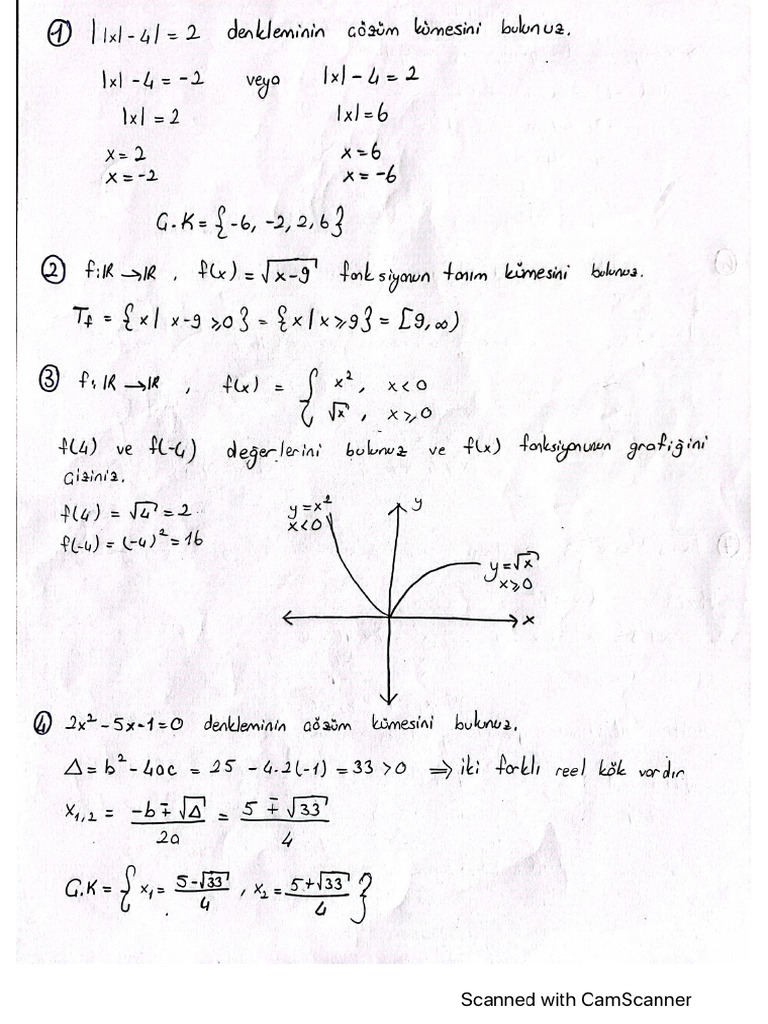 ① ||x|-4| = 2 denkleminin çözüm kümesini bulunuz.
|x| -4 = -2 veya |x| -4 = 2
|x| = 2 |x| = 6
x = 2 x = 6
x = -2 x = -6
Ç.K = {-6, -2, 2, 6}
② f: IR → IR , f(x) = √x-9 fonksiyonun tanım kümesini bulunuz.
Tf = {x | x-9 ≥ 0} = {x | x ≥ 9} = [9, ∞)
③ f: IR → IR , f(x) = { x², x < 0
√x , x ≥ 0
f(4) ve f(-4) değerlerini bulunuz ve f(x) fonksiyonunun grafiğini
çiziniz.
f(4) = √4 = 2
f(-4) = (-4)² = 16
y = x²
x < 0
y
y = √x
x ≥ 0
x
④ 2x² - 5x - 1 = 0 denkleminin çözüm kümesini bulunuz.
Δ = b² - 4ac = 25 - 4.2(-1) = 33 > 0 ⇒ iki farklı reel kök vardır
x₁,₂ = (-b ∓ √Δ)/2a = (5 ∓ √33)/4
Ç.K = { x₁ = (5-√33)/4 , x₂ = (5+√33)/4 }
Scanned with CamScanner